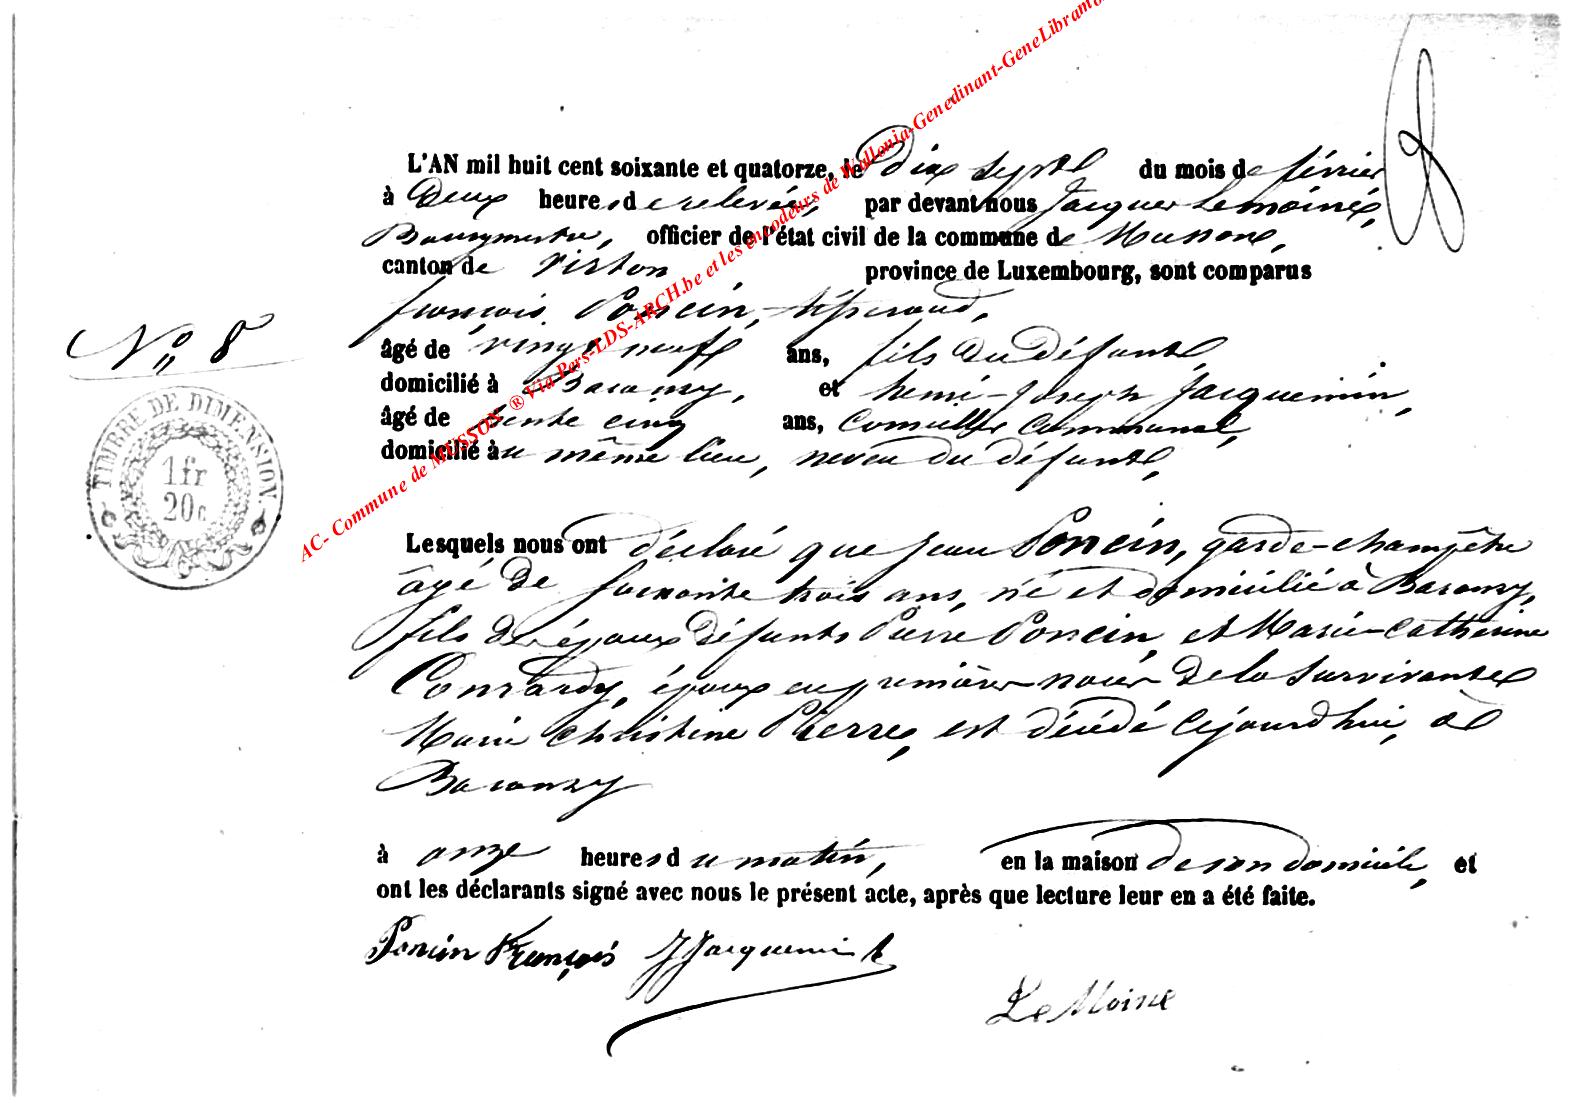 L'AN mil huit cent soixante et quatorze, le dix sept du mois de février
à deux heures de relevée, par devant nous Jacques Lemoine,
Bourgmestre, officier de l'état civil de la commune de Musson,
canton de Virton province de Luxembourg, sont comparus
françois Poncin,
N° 8
âgé de vingt neuf ans, fils du défunt,
domicilié à Baranzy, et henri-Joseph Jacquemin,
âgé de trente cinq ans, Conseiller Communal,
domicilié au même lieu, neveu du défunt,
TIMBRE DE DIMENSION.
1 fr
20 c
AC- Commune de MUSSON ® Via Pers-LDS-ARCH.be et les encodeurs de Wallonia-Genedinant-GeneLibramo
Lesquels nous ont déclaré que Jean Poncin, garde-champêtre
âgé de soixante trois ans, né et domicilié à Baranzy,
fils des époux défunts Pierre Poncin, et Marie-Catherine
Conrardy, époux en premières noces de la survivante
Marie Christine Pierre, est décédé cejourd'hui, à
Baranzy
à onze heures du matin, en la maison de son domicile, et
ont les déclarants signé avec nous le présent acte, après que lecture leur en a été faite.
Poncin François J Jacquemin
Le Moine